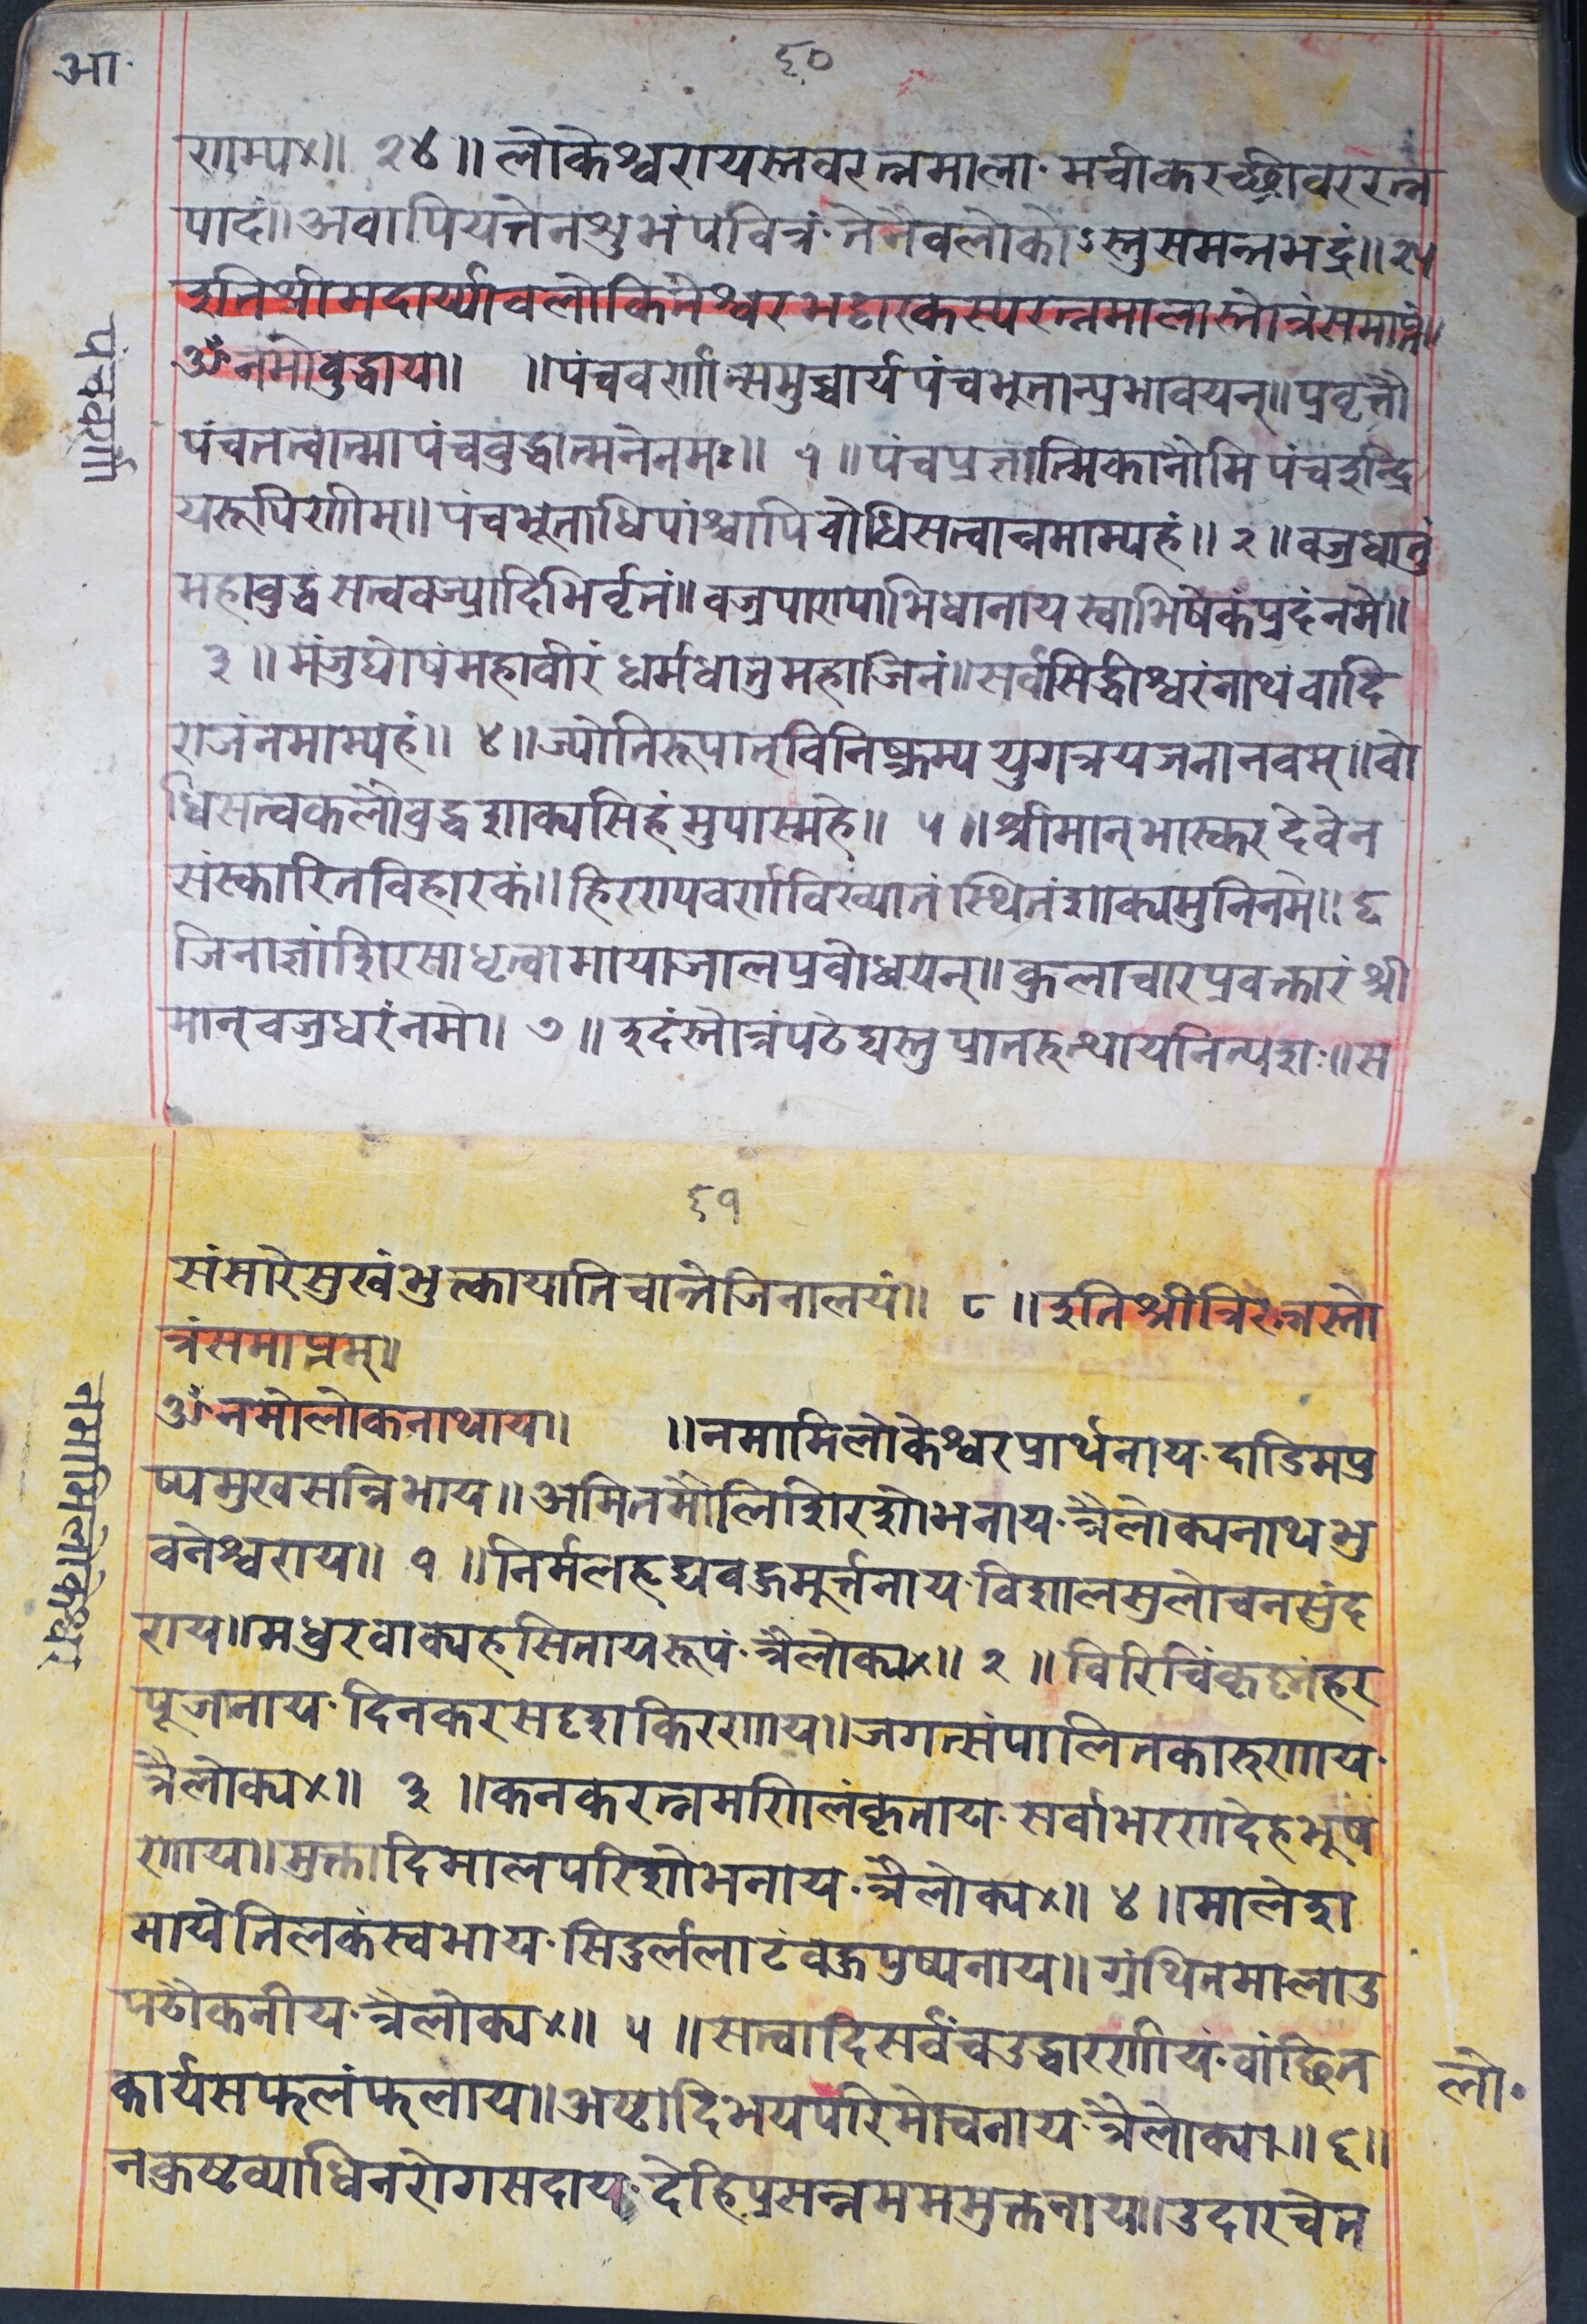 ६०
आ॰
णाम्य×॥ २४॥ लोकेश्वरायस्तवरत्नमाला॰मचीकरच्छ्रीवररत्न
पादं॥अवापियत्तेनशुभंपवित्रं॰तेनैवलोकोऽस्तुसमन्तभद्रं॥२५
इतिश्रीमदार्य्यावलोकितेश्वरभट्टारकस्यरत्नमालास्तोत्रंसमाप्तं॥
ॐनमोबुद्धाय॥ ॥पंचवर्णान्समुच्चार्यपंचभूतान्प्रभावयन्॥प्रवृत्तौ
पंचतत्वात्मापंचबुद्धात्मनेनमः॥ १॥पंचप्रज्ञात्मिकानौमिपंचइन्द्रि
यरूपिणीम्॥पंचभूताधिपांश्चापिबोधिसत्वान्नमाम्यहं॥ २॥वज्रधातुं
महाबुद्धंसत्ववज्र्यादिभिर्वृतं॥वज्रपाण्यपाभिधानायस्वाभिषेकंप्रदंनमे॥
३॥मंजुघोषंमहावीरंधर्मधातुमहाजिनं॥सर्वसिद्धीश्वरंनाथंवादि
राजंनमाम्यहं॥ ४॥ज्योतिरूपात्विनिष्क्रम्ययुगत्रयजनानवम्॥बो
धिसत्वकलौबुद्धशाक्यसिहंमुपास्महे॥ ५॥श्रीमान्भास्करदेवेन
संस्कारितविहारकं॥हिरण्यवर्णविख्यातंस्थितंशाक्यमुनिनमे॥६
जिनाज्ञांशिरसाधृत्वामायाजालप्रबोधयन्॥कुलाचारप्रवक्तारंश्री
मान्वज्रधरंनमे॥ ७॥इदंस्तोत्रंपठेद्यस्तुप्रातरुत्थायनित्यशः॥स
पंचवर्ण
६१
संसारेसुखंभुत्कायातिचान्तेजिनालयं॥ ८॥इतिश्रीत्रिरत्नस्तो
त्रंसमाप्तम्॥
ॐनमोलोकनाथाय॥ ॥नमामिलोकेश्वरप्रार्थनाय॰दाडिमपु
ष्पमुखसन्निभाय॥अमितमौलिशिरशोभनाय॰त्रैलोक्यनाथभु
वनेश्वराय॥ १॥निर्मलहृद्यवद्धमूर्त्तनाय॰विशालसुलोचनसुंद
राय॥मधुरवाक्यहसितायरूपं॰त्रैलोक्य×॥ २॥विरिचिंकृष्टतंहर
पूजनाय॰दिनकरसदृशकिरणाय॥जगत्संपालितकारुणाय॰
त्रैलोक्य×॥ ३॥कनकरत्नमणिलंकृताय॰सर्वाभरणदेहभूष
णाय॥मुक्तादिमालपरिशोभनाय॰त्रैलोक्य×॥ ४॥मालेशु
मायेतिलकंस्वभाय॰सिदुर्ललाटंवद्धपुष्पनाय॥ग्रंथितमालाउ
पढौकनीय॰त्रैलोक्य×॥ ५॥सत्वादिसर्वंचउद्धारणीयं॰वांछित
कार्यसफलंफलाय॥अष्टादिभयपरिमोचनाय॰त्रैलोक्य×॥६॥
नकुष्टव्याधिनरोगसदाय॰देहिप्रसन्नमममुक्तनाय॥उदारचेत
नमामिलोकेश्वर
लो॰